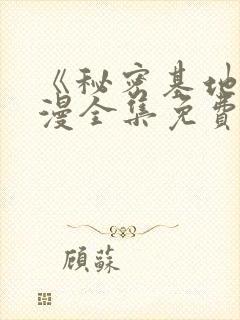 《秘密基地
漫全集免費
顧蘇